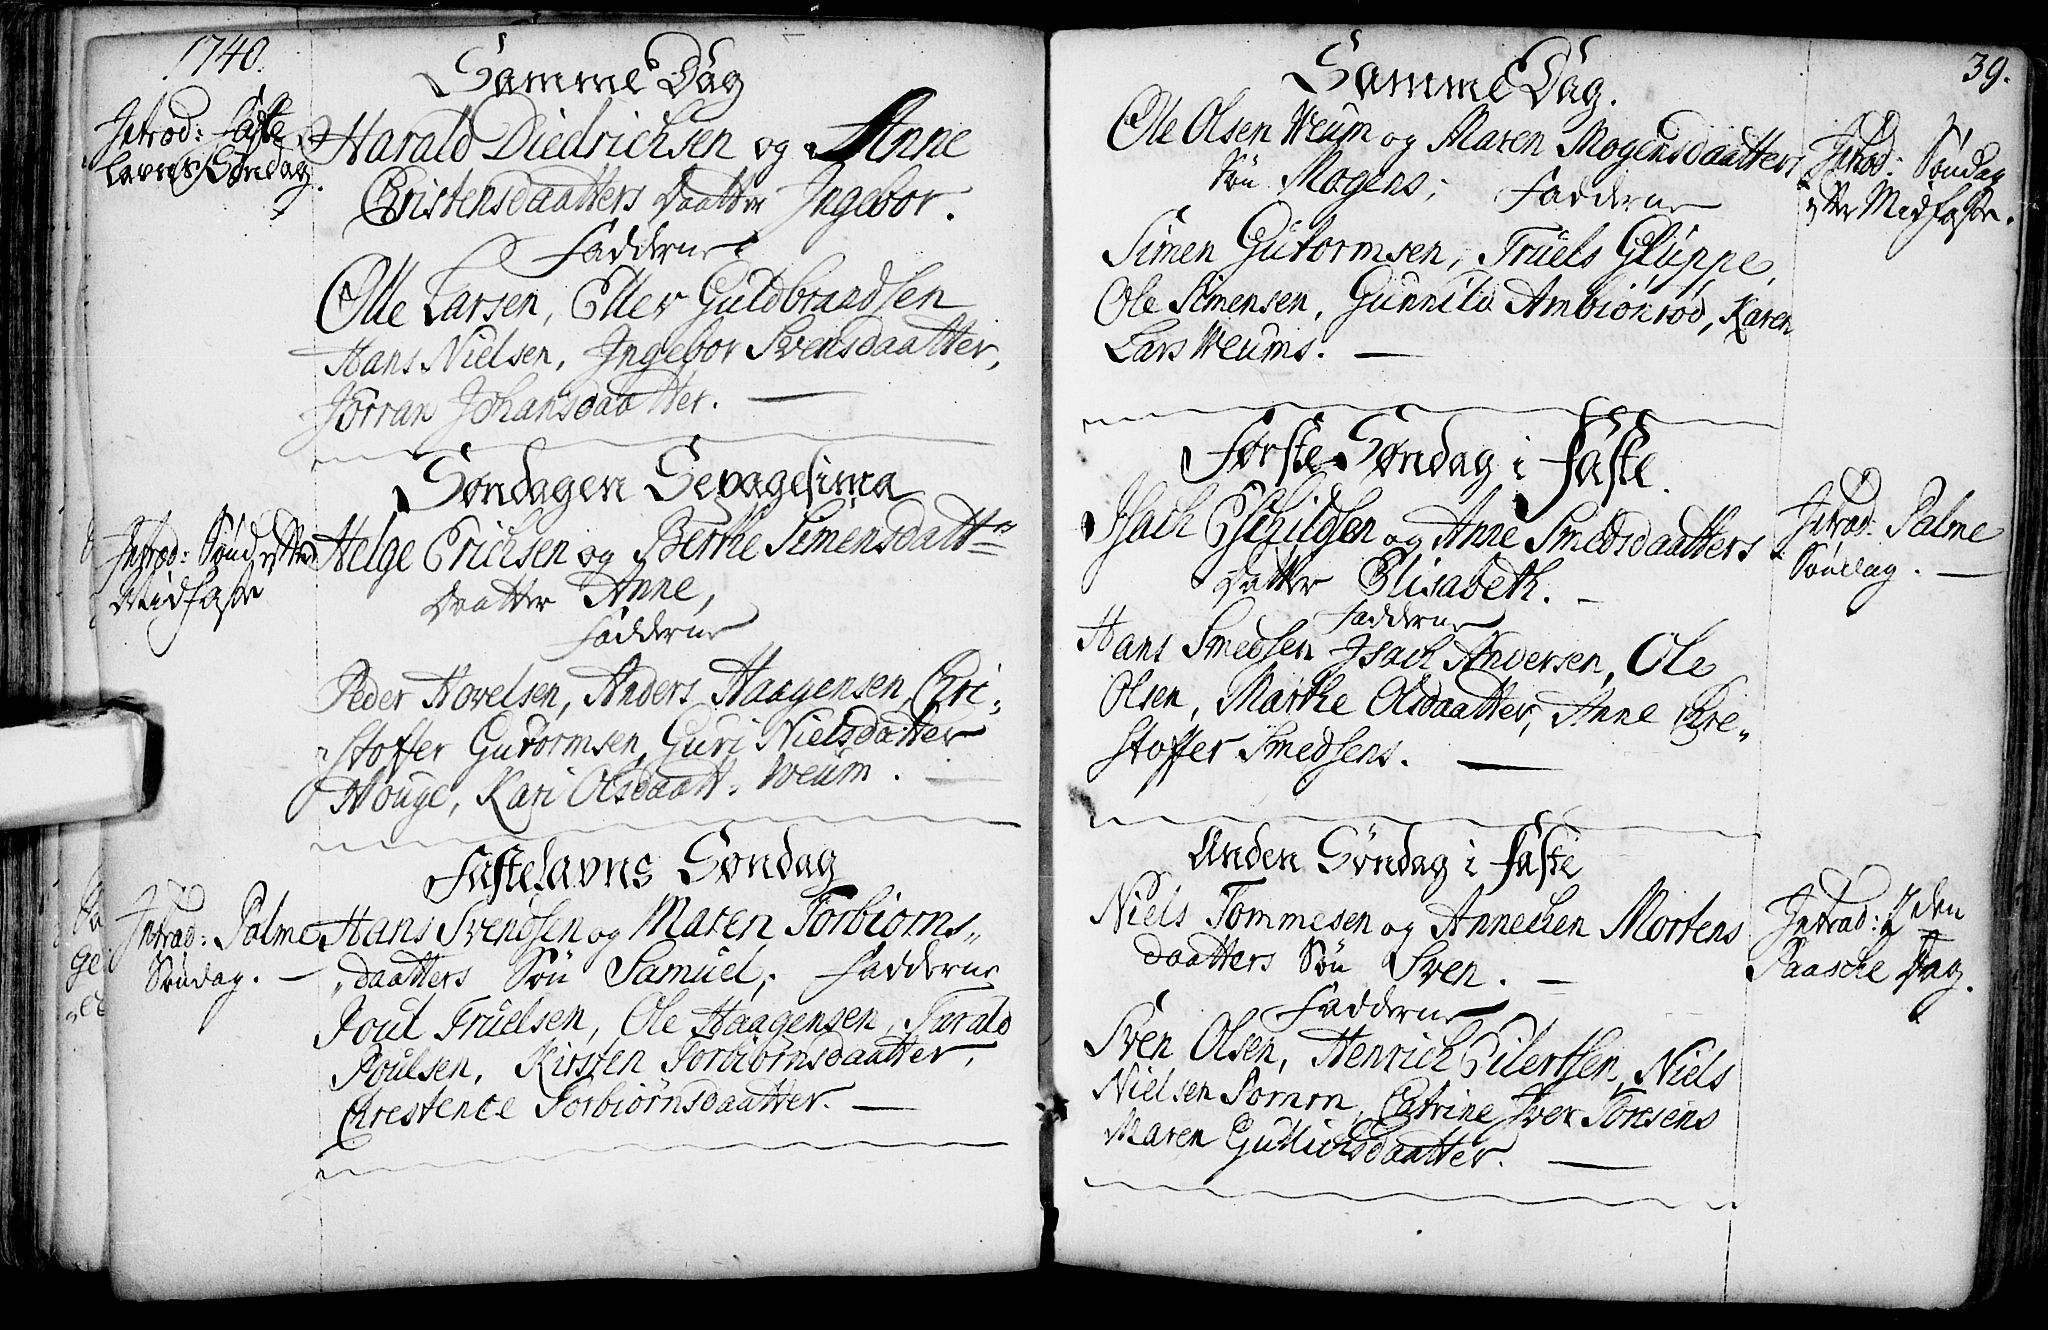 1740.
Samme Dag
Introd: Faste
Lavns Søndag.
Harald Diedrichsen og Anne
Christensdaatters Daatter Ingebor.
Fadderne
Olle Larsen, Eller Guldbrandsen
Hans Nielsen, Ingebor Svensdaatter,
Jörran Johansdaatter. —
Søndagen Sexagesima
Introd: Sönd: efter
Midfaste
Helge Erichsen og Berthe Simensdatt:
Daatter Anne,
Fadderne
Peder Hovelsen, Anders Haagensen, Chri-
stoffer Gutormsen, Guri Nielsdatter
Houge, Kari Olsdaatt: Weum. —
Fastelavns Søndag
Introd: Palme
Søndag. —
Hans Svendsen og Maren Torbiørns-
daatters Søn Samuel, Fadderne
Poul Truelsen, Ole Haagensen, Harald
Poulsen, Kirsten Torbiørnsdaatter,
Chrestence Torbiørnsdaatter. —
39.
Samme Dag.
Ole Olsen Weum og Maren Mogensdaatters
Søn Mogens; Fadderne
Introd: Søndag
efter Midfaste.
Simen Gutormsen, Truels Gluppe,
Ole Simensen, Gunnild Ambiönröd, Karen
Lars Weums. —
Første Søndag i Faste.
Isach Eschildsen og Anne Smedsdaatters
Datter Elisabeth. —
Introd: Palme
Søndag. —
Fadderne
Hans Smedsen Isach Andersen, Ole
Olsen, Marthe Olsdaatter, Anne Chre-
stoffer Smedsens. —
Anden Søndag i Faste
Niels Tommesen og Annechen Mortens
daatters Søn Sven. —
Introd: 2den
Paasche Dag.
Fadderne
Sven Olsen, Henrich Eilertsen, Niels
Nielsen Tomm, Catrine Iver Toresens
Maren Gullichsdaatter. —